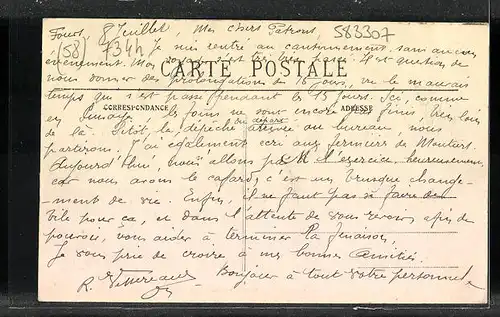 Fours, 8 Juillet, Mes chers Patrons, 583307
(58) 734h Je suis rentré au cantonnement sans aucun
évènement. Mon voyage s'est très bien passé. Il est question de
CARTE POSTALE
nous donner des prolongations de 15 jours, vu le mauvais
temps qui s'est passé pendant les 15 jours. Ici, comme
CORRESPONDANCE ADRESSE
en les foins ne sont encore pas finis, très loin
du départ
de là. Sitôt la dépêche arrivée au bureau, nous
partirons. J'ai également écrit aux fermiers de
Aujourd'hui, nous allons à l'exercice, heureusement
car nous avons le cafard, c'est un brusque change-
ment de vie. Enfin, il ne faut pas s'en faire
bile pour ça, et dans l'attente de vous revoir, afin de
pouvoir vous aider à terminer la fenaison,
Je vous prie de croire à mes bonnes Amitiés.
Bonjour à tout votre personnel.
R.